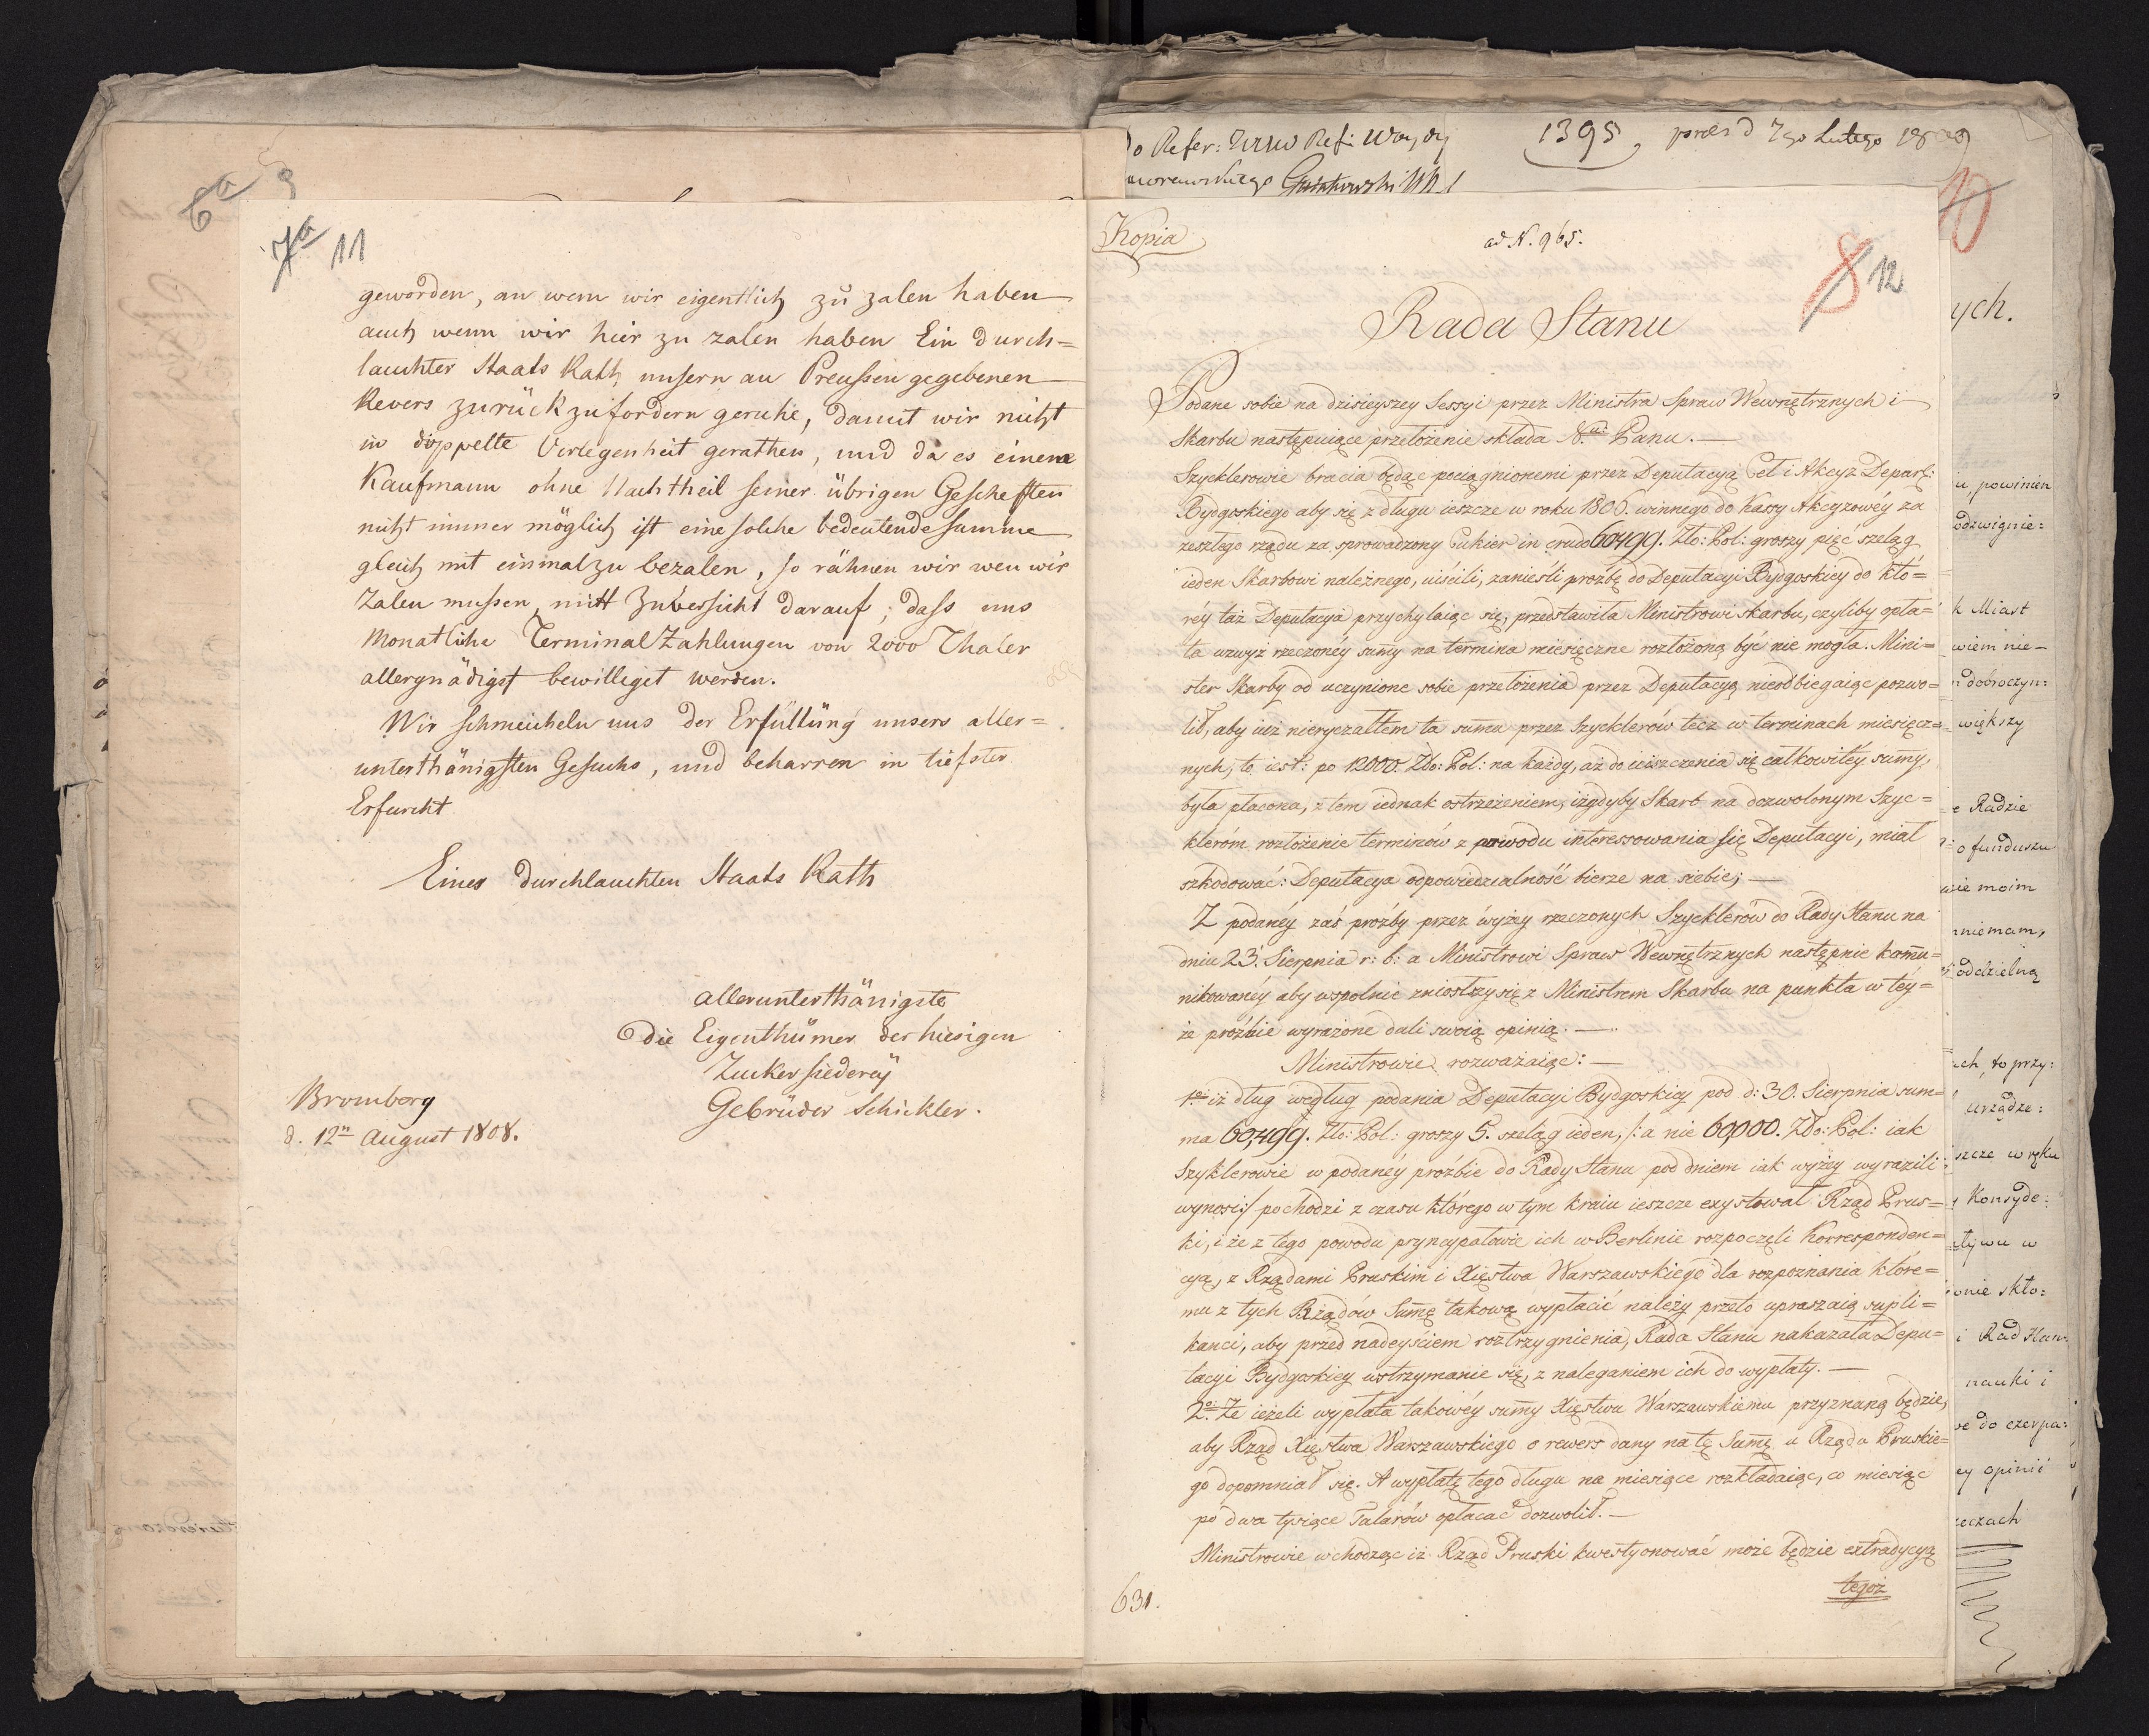 6a
9
7a 11
geworden, an wem wir eigentlich zu zalen haben
auch wenn wir hier zu zalen haben Ein durch=
lauchter Staats Rath, unsern an Preussen gegebenen
Revers zurückzufordern geruhe, damit wir nicht
in doppelte Verlegenheit gerathen, und da es einem
Kaufmann ohne Nachtheil seiner übrigen Gescheften
nicht immer möglich ist eine solche bedeutende Summe
gleich mit einmal zu bezalen, so rähnen wir wen wir
Zalen mussen, mitt Zuversicht darauf; dass uns
Monatliche Terminal Zahlungen von 2000 Thaler
allergnädigst bewilliget werden.
Wir schmeicheln uns der Erfüllüng unsers aller=
unterthänigsten Gesuchs, und beharren in tiefster
Erfurcht
Eines durchlauchten Staats Rath
allerunterthänigste
die Eigenthümer der hiesigen
Zuckersiederey
Gebrüder Schickler.
Bromberg
d. 12n August 1808.
1395 praes d 7go Lutego 1809
10
Kopia
ad N. 965.
8 12
Rada Stanu
Podane sobie na dzisieyszey Sessyi przez Ministra Spraw Wewnętrznych i
Skarbu następuiące przełożenie składa N.u Panu.—
Szycklerowie bracia będąc pociągnionemi przez Deputacyą Ceł i Akcyz Depart:
Bydgoskiego aby się z długu ieszcze w roku 1806. winnego do Kassy Akcyzowéy za
zeszłego rządu za sprowadzony Cukier in crudo 60499. Zło: Pol: groszy pięć szeląg
ieden Skarbowi należnego, uiścili, zanieśli proźbę do Deputacyi Bydgoskiey do któ=
réy taż Deputacya przychylaiąc się, przedstawiła Ministrowi skarbu, czyliby opła=
ta wzwyż rzeczonéy sumy na termina miesięczne rozłożoną być nie mogła. Mini=
ster Skarbu od uczynione sobie przełożenia przez Deputacyą nieodbiegaiąc pozwo=
lił, aby iuż nieryczałtem ta suma przez Szycklerów lecz w terminach miesięcz=
nych, to iest: po 12000. Zło: Pol: na każdy, aż do uiszczenia się całkowitéy sumy,
była płacona, z tem iednak ostrzeżeniem, iżgdyby Skarb na dozwolonym Szyc=
kleróm rozłożenie terminów z powodu interessowania się Deputacyi, miał
szkodować: Deputacya odpowiedzialność bierze na siebie;—
Z podanéy zaś proźby przez wyżey rzeczonych Szycklerów do Rady Stanu na
dniu 23. Sierpnia r: b: a Ministrowi Spraw Wewnętrznych następnie komu=
nikowanéy aby wspolnie zniosłszy się z Ministrem Skarbu na punkta w téy=
że proźbie wyrażone dali swoią opinią.—
Ministrowie rozważaiąc:—
1o iż dług według podania Deputacyi Bydgoskiey pod d: 30. Sierpnia sum=
ma 60,499. Zło: Pol: groszy 5. szeląg ieden, /: a nie 60,000. Zło: Pol: iak
Szyklerowie w podanéy proźbie do Rady Stanu pod dniem iak wyżey wyrazili
wynosi:/ pochodzi z czasu którego w tym kraiu ieszcze exystował Rząd Prus=
ki, i że z tego powodu pryncypałowie ich w Berlinie rozpoczęli Korresponden=
cyą, z Rządami Pruskim i Xięstwa Warszawskiego dla rozpoznania które=
mu z tych Rządów Sumę takową wypłacić należy przeto upraszaią supli=
kanci, aby przed nadeyściem roztrzygnienia, Rada Stanu nakazała Depu=
tacyi Bydgoskiey wstrzymanie się, z naleganiem ich do wypłaty.—
2o Że ieżeli wypłata takowéy sumy Xięstwu Warszawskiemu przyznaną będzie,
aby Rząd Xięstwa Warszawskiego o rewers dany na tę Sumę u Rządu Pruskie=
go dopomniał się. A wypłatę tego długu na miesiące rozkładaiąc, co miesiąc
po dwa tysiące Talarów opłacać dozwolił.—
Ministrowie wchodząc iż Rząd Pruski kwestyonować może będzie extradycyą
tegoż
631.
ych.
powinien
odzwignie:
k Miast
wiem nie=
dobroczyn:
większy
Radzie
o funduszu
wie moim
niemam,
oddzielną
ach, to przy:
urządze:
szcze w ręku
Konsyde:
Rad
nauki i
do czerpa:
ey opinii